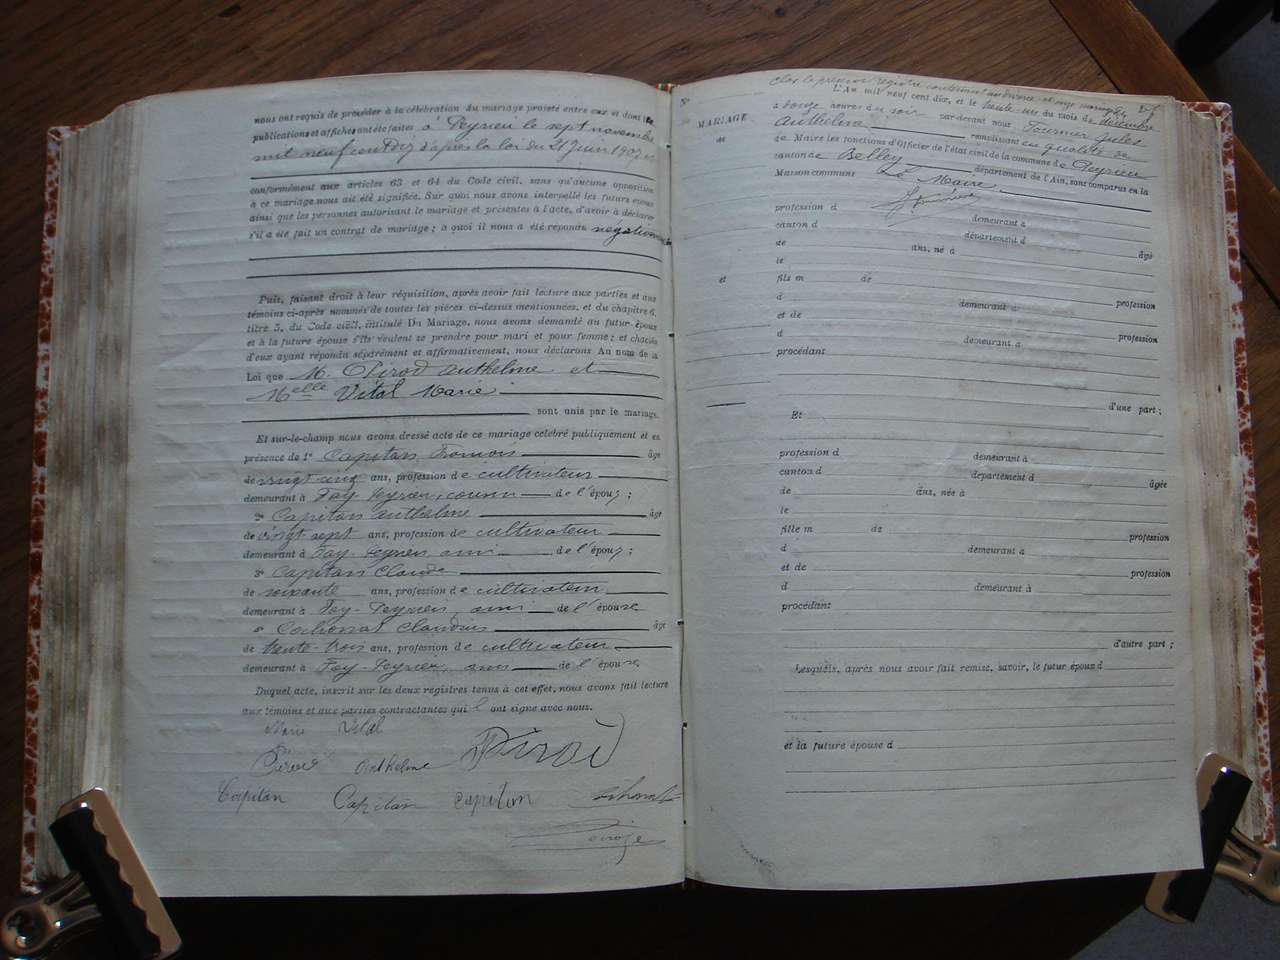 nous ont requis de procéder à la célébration du mariage projeté entre eux et dont les
publications et affiches ont été faites à Peyrieu le sept novembre
mil neuf cent dix d'après la loi du 21 Juin 1907
conformément aux articles 63 et 64 du Code civil, sans qu'aucune opposition
à ce mariage nous ait été signifiée. Sur quoi nous avons interpellé les futurs époux
ainsi que les personnes autorisant le mariage et présentes à l'acte, d'avoir à déclarer
s'il a été fait un contrat de mariage; à quoi il nous a été répondu
Puis, faisant droit à leur réquisition, après avoir fait lecture aux parties et aux
témoins ci-après nommés de toutes les pièces ci-dessus mentionnées, et du chapitre 6,
titre 5, du Code civil, intitulé Du Mariage, nous avons demandé au futur époux
et à la future épouse s'ils veulent se prendre pour mari et pour femme; et chacun
d'eux ayant répondu séparément et affirmativement, nous déclarons Au nom de la
Loi que M. Pirod Anthelme et
Melle Vital Marie
sont unis par le mariage.
Et sur-le-champ nous avons dressé acte de ce mariage célébré publiquement et en
présence de 1º Capitan François âgé
de vingt cinq ans, profession de cultivateur
demeurant à Fay-Peyrieu, cousin de l'époux;
2º Capitan Anthelme âgé
de vingt sept ans, profession de cultivateur
demeurant à Fay-Peyrieu, ami de l'époux;
3º Capitan Claude
de soixante ans, profession de cultivateur
demeurant à Fay-Peyrieu, ami de l'épouse
4º Cochonat Claudius âgé
de trente-trois ans, profession de cultivateur
demeurant à Fay-Peyrieu, ami de l'épouse
Duquel acte, inscrit sur les deux registres tenus à cet effet, nous avons fait lecture
aux témoins et aux parties contractantes qui ont signé avec nous.
Marie Vital
Pirod Anthelme Pirod
Capitan Capitan Capitan Cochonat
Clos le présent registre contenant un divorce et onze mariages
Nº
L'An mil neuf cent dix, et le trente-un du mois de décembre
MARIAGE
à douze heures du soir par-devant nous Fournier Jules
Anthelme remplissant en qualité de
de
de Maire les fonctions d'Officier de l'état civil de la commune de Peyrieu
canton de Belley département de l'Ain, sont comparus en la
Maison commune Le Maire
profession d demeurant à
canton d département d âgé
de ans, né à
le
et
fils m de
d demeurant à profession
et de
d demeurant à profession
procédant
d'une part;
Et
profession d demeurant à
canton d département d âgée
de ans, née à
le
fille m de profession
d demeurant à
et de profession
d demeurant à
procédant
d'autre part;
Lesquels, après nous avoir fait remise, savoir, le futur époux d
et la future épouse d